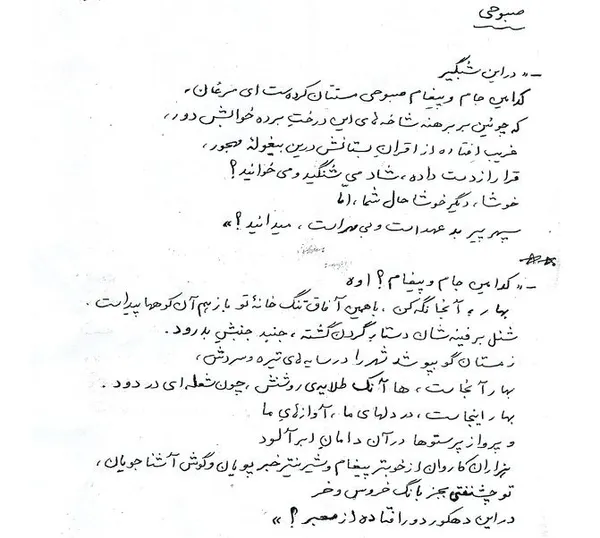 صبوحی
ـ « در این شبگیر
کدامین جام و پیغام صبوحی مستتان کرده‌ست ای مرغان ،
که چونین بر برهنه شاخه‌های این درختِ برده خوابش دور ،
غریب افتاده از اقران بستانش درین بیغولهٔ مهجور ،
قرار از دست داده ، شاد می‌شنگید و می‌خوانید ؟
خوشا ، دیگر خوشا حال شما ، اما
سپهر پیر بد عهد است و بی مهر است ، میدانید ؟ »
**
ـ « کدامین جام و پیغام ؟ اوه
بهار ، آنجا نگه کن ، با همین آفاق تنگ خانهٔ تو باز هم آن کوهها پیداست .
شنل برفینه‌شان دستار گردن گشته ، جنبد جنبشِ بدرود .
زمستان گو بپوشد شهر را در سایه‌های تیره و سردش ،
بهار آنجاست ، ها آنک طلایه‌ی روشنش ، چون شعله‌ای در دود .
بهار اینجاست ، در دلهای ما ، آوازهای ما
و پرواز پرستوها در آن دامان ابر آلود
هزاران کاروان از خوبتر پیغام و شیرینتر خبر پویان و گوش آشنا جویان ،
تو چشنفتی بجز بانگ خروس و خر
در این دهکور دور افتاده از معبر ؟ »